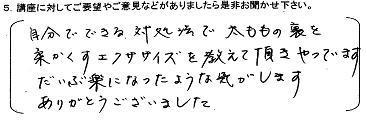 5. 講座に対してご要望やご意見などがありましたら是非お聞かせ下さい。
自分でできる対処法で太ももの裏を
柔かくすエクササイズを教えて頂きやっています
だいぶ楽になったような気がします
ありがとうございました